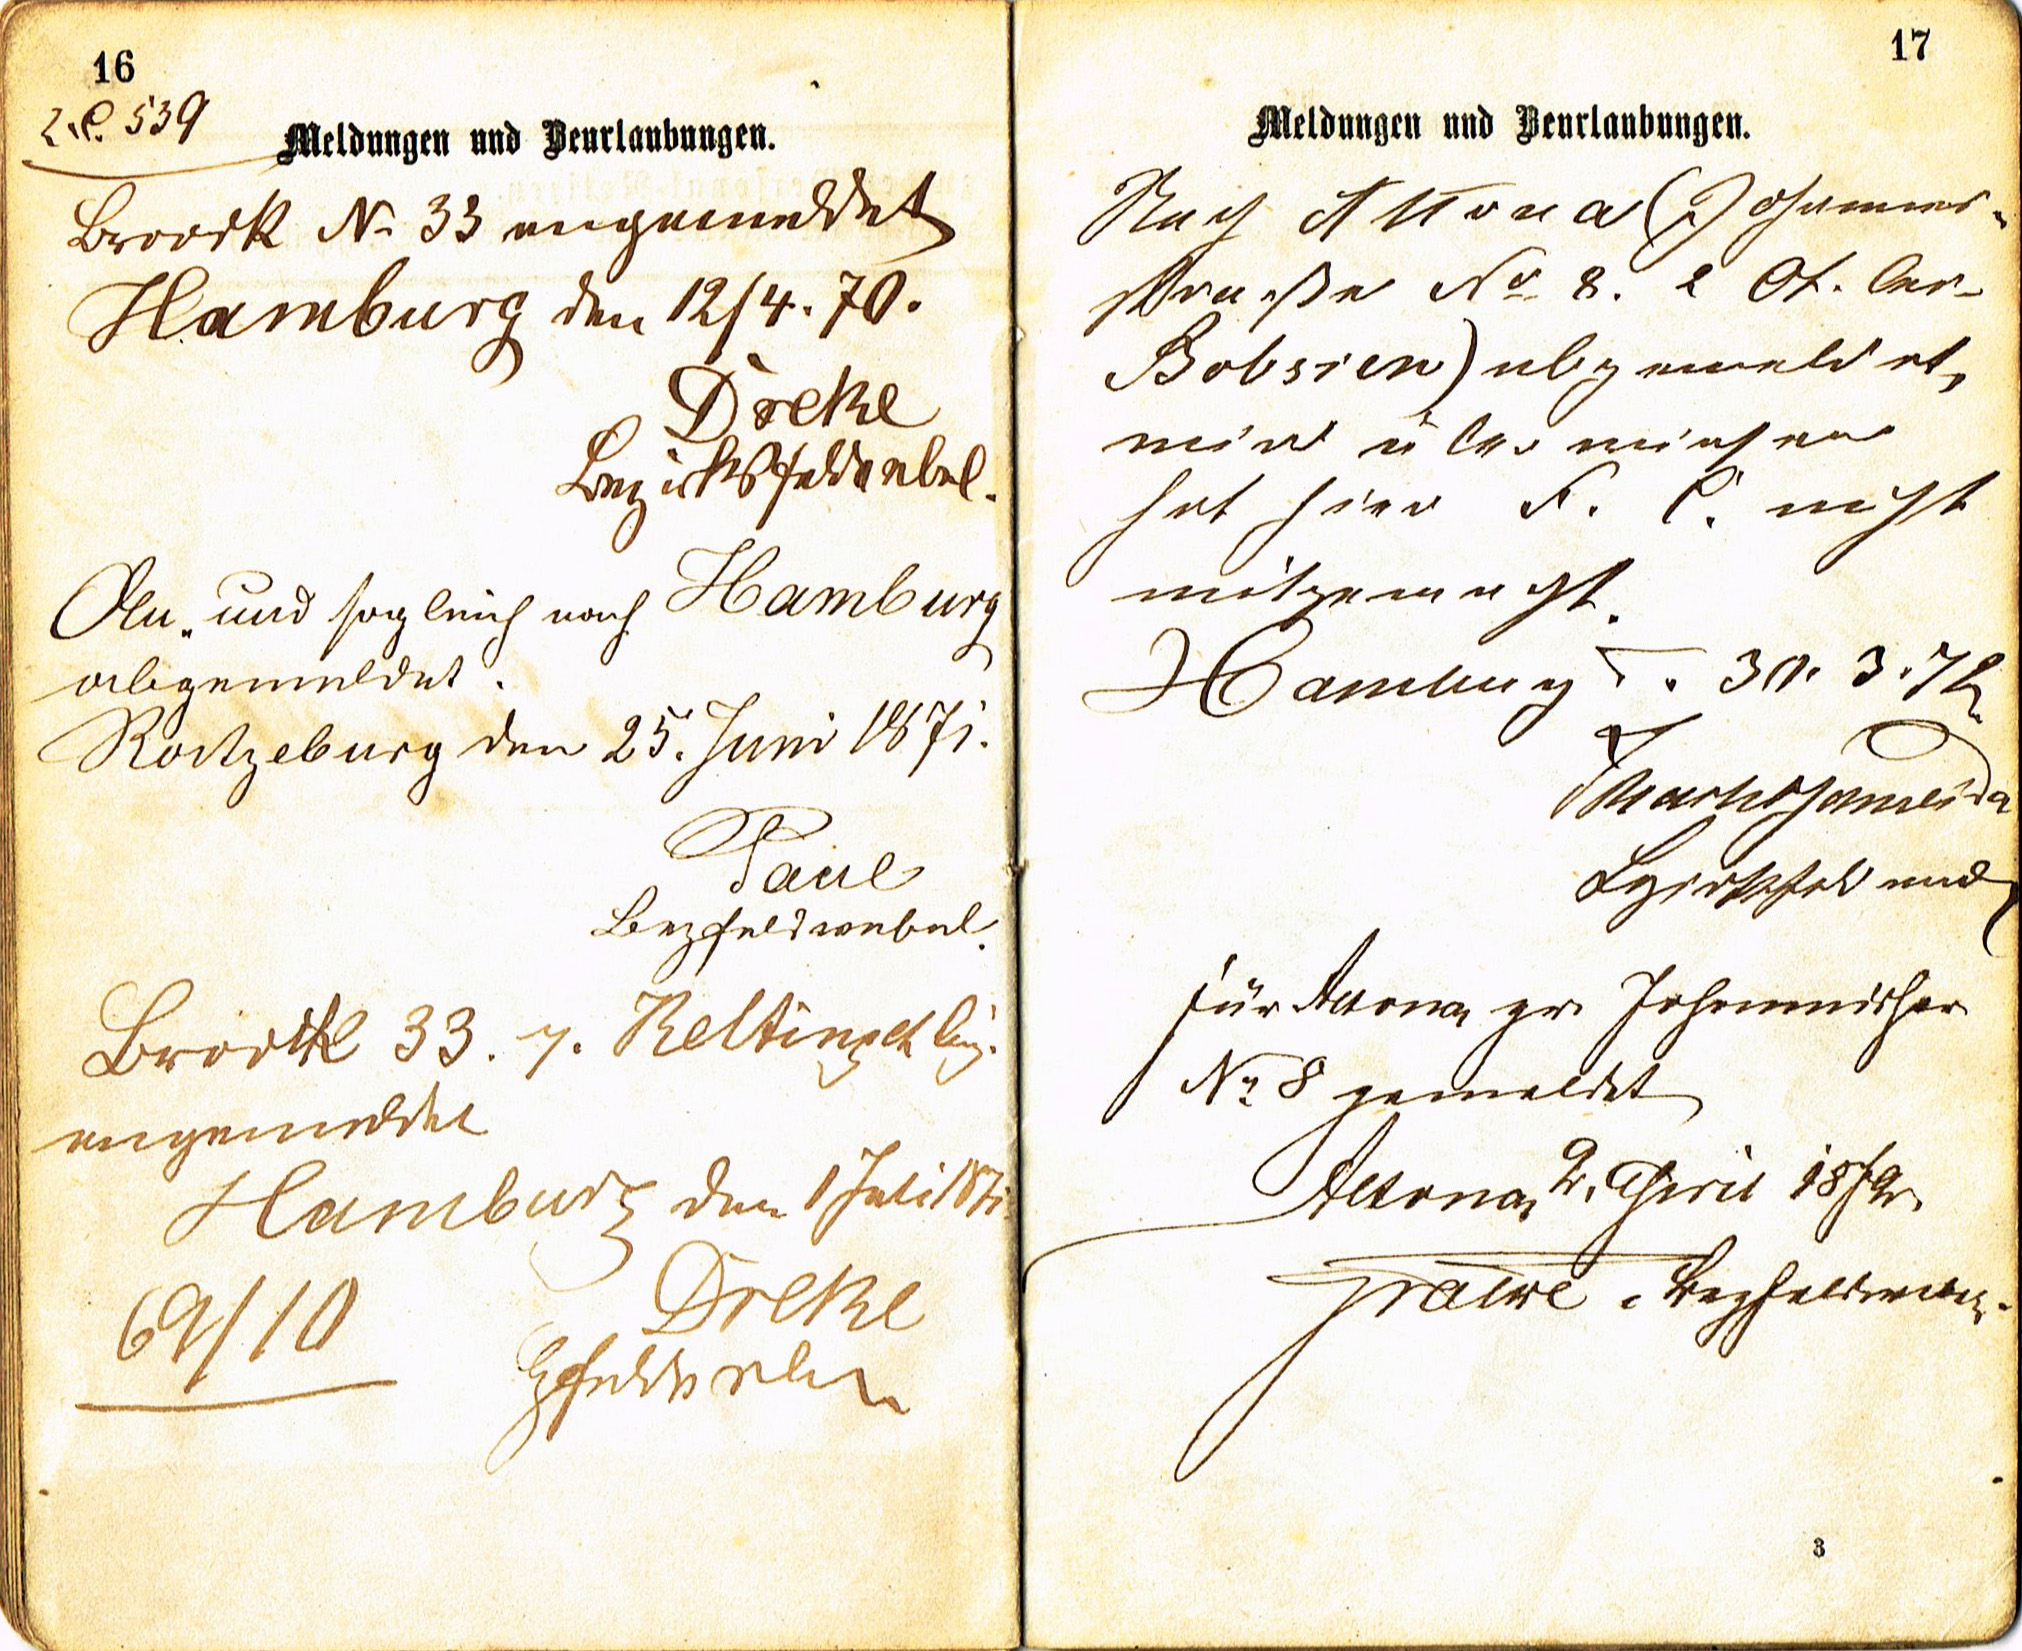 16
539
Meldungen und Beurlaubungen.
Broock No 33 angemeldet
Hamburg den 12/4. 70.
Dreke
Bezirksfeldwebel.
An- und sogleich nach Hamburg
abgemeldet.
Ratzeburg den 25. Juni 1871.
Paul
Bezfeldwebel.
Broock 33.
angemeldet
Hamburg den 1 Juli 1871
Dreke
69/10
Bzfeldwebel
17
Meldungen und Beurlaubungen.
Nach Altona (Johannes-
straße No 8. 2 Et. bei
Bobsien) abgemeldet,
wird überwiesen
hat hier F. C. nicht
mitgemacht.
Hamburg d. 30. 3. 72
Bezirksfeldwebel
für Altona gr. Johannisstr
No 8 gemeldet
Altona, 2. April 1872.
Bezfeldwebel.
3